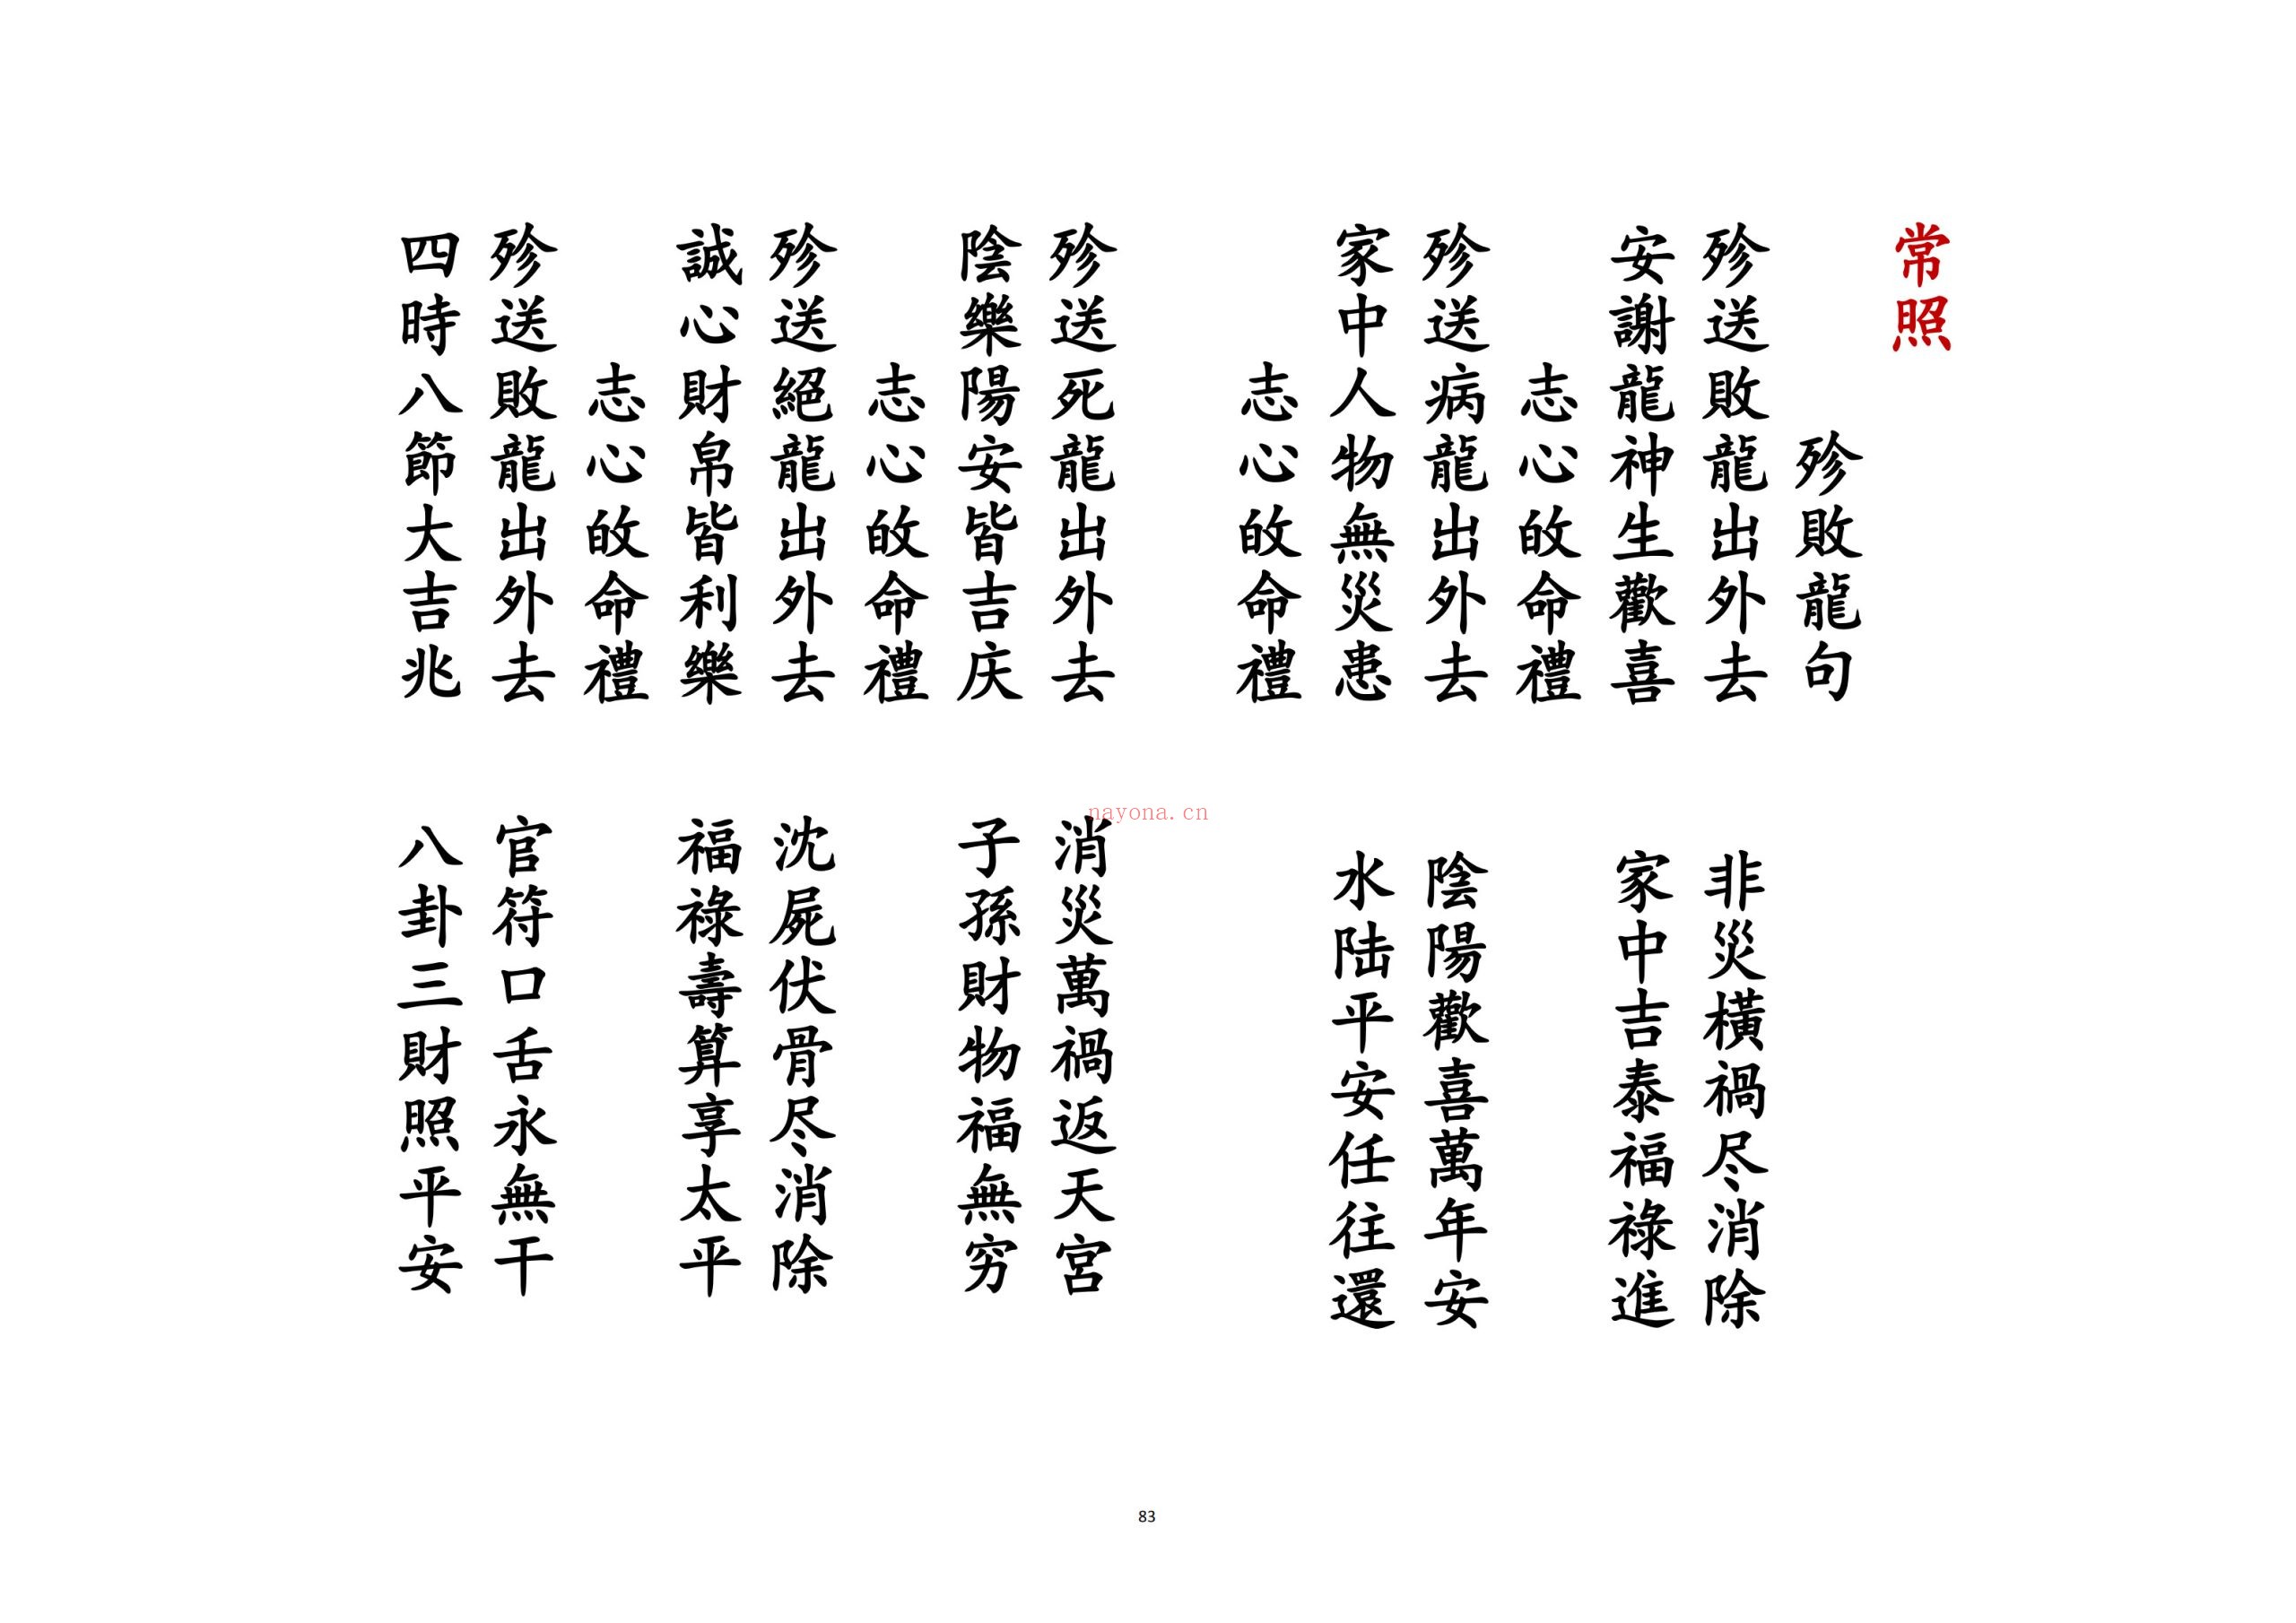 常照
殄敗龍句
殄送敗龍出外去　非災橫禍尽消除
安謝龍神生歡喜　家中吉泰福祿進
志心皈命禮
殄送病龍出外去　陰陽歡喜萬年安
家中人物無災患　水陆平安任往還
志心皈命禮
殄送死龍出外去　消災萬禍返天宮
陰樂陽安皆吉庆　子孫財物福無穷
志心皈命禮
殄送絕龍出外去　沈屍伏骨尽消除
誠心財帛皆利樂　福祿壽算享太平
志心皈命禮
殄送敗龍出外去　官符口舌永無干
四時八節大吉兆　八卦三財照平安
nayona.cn
83